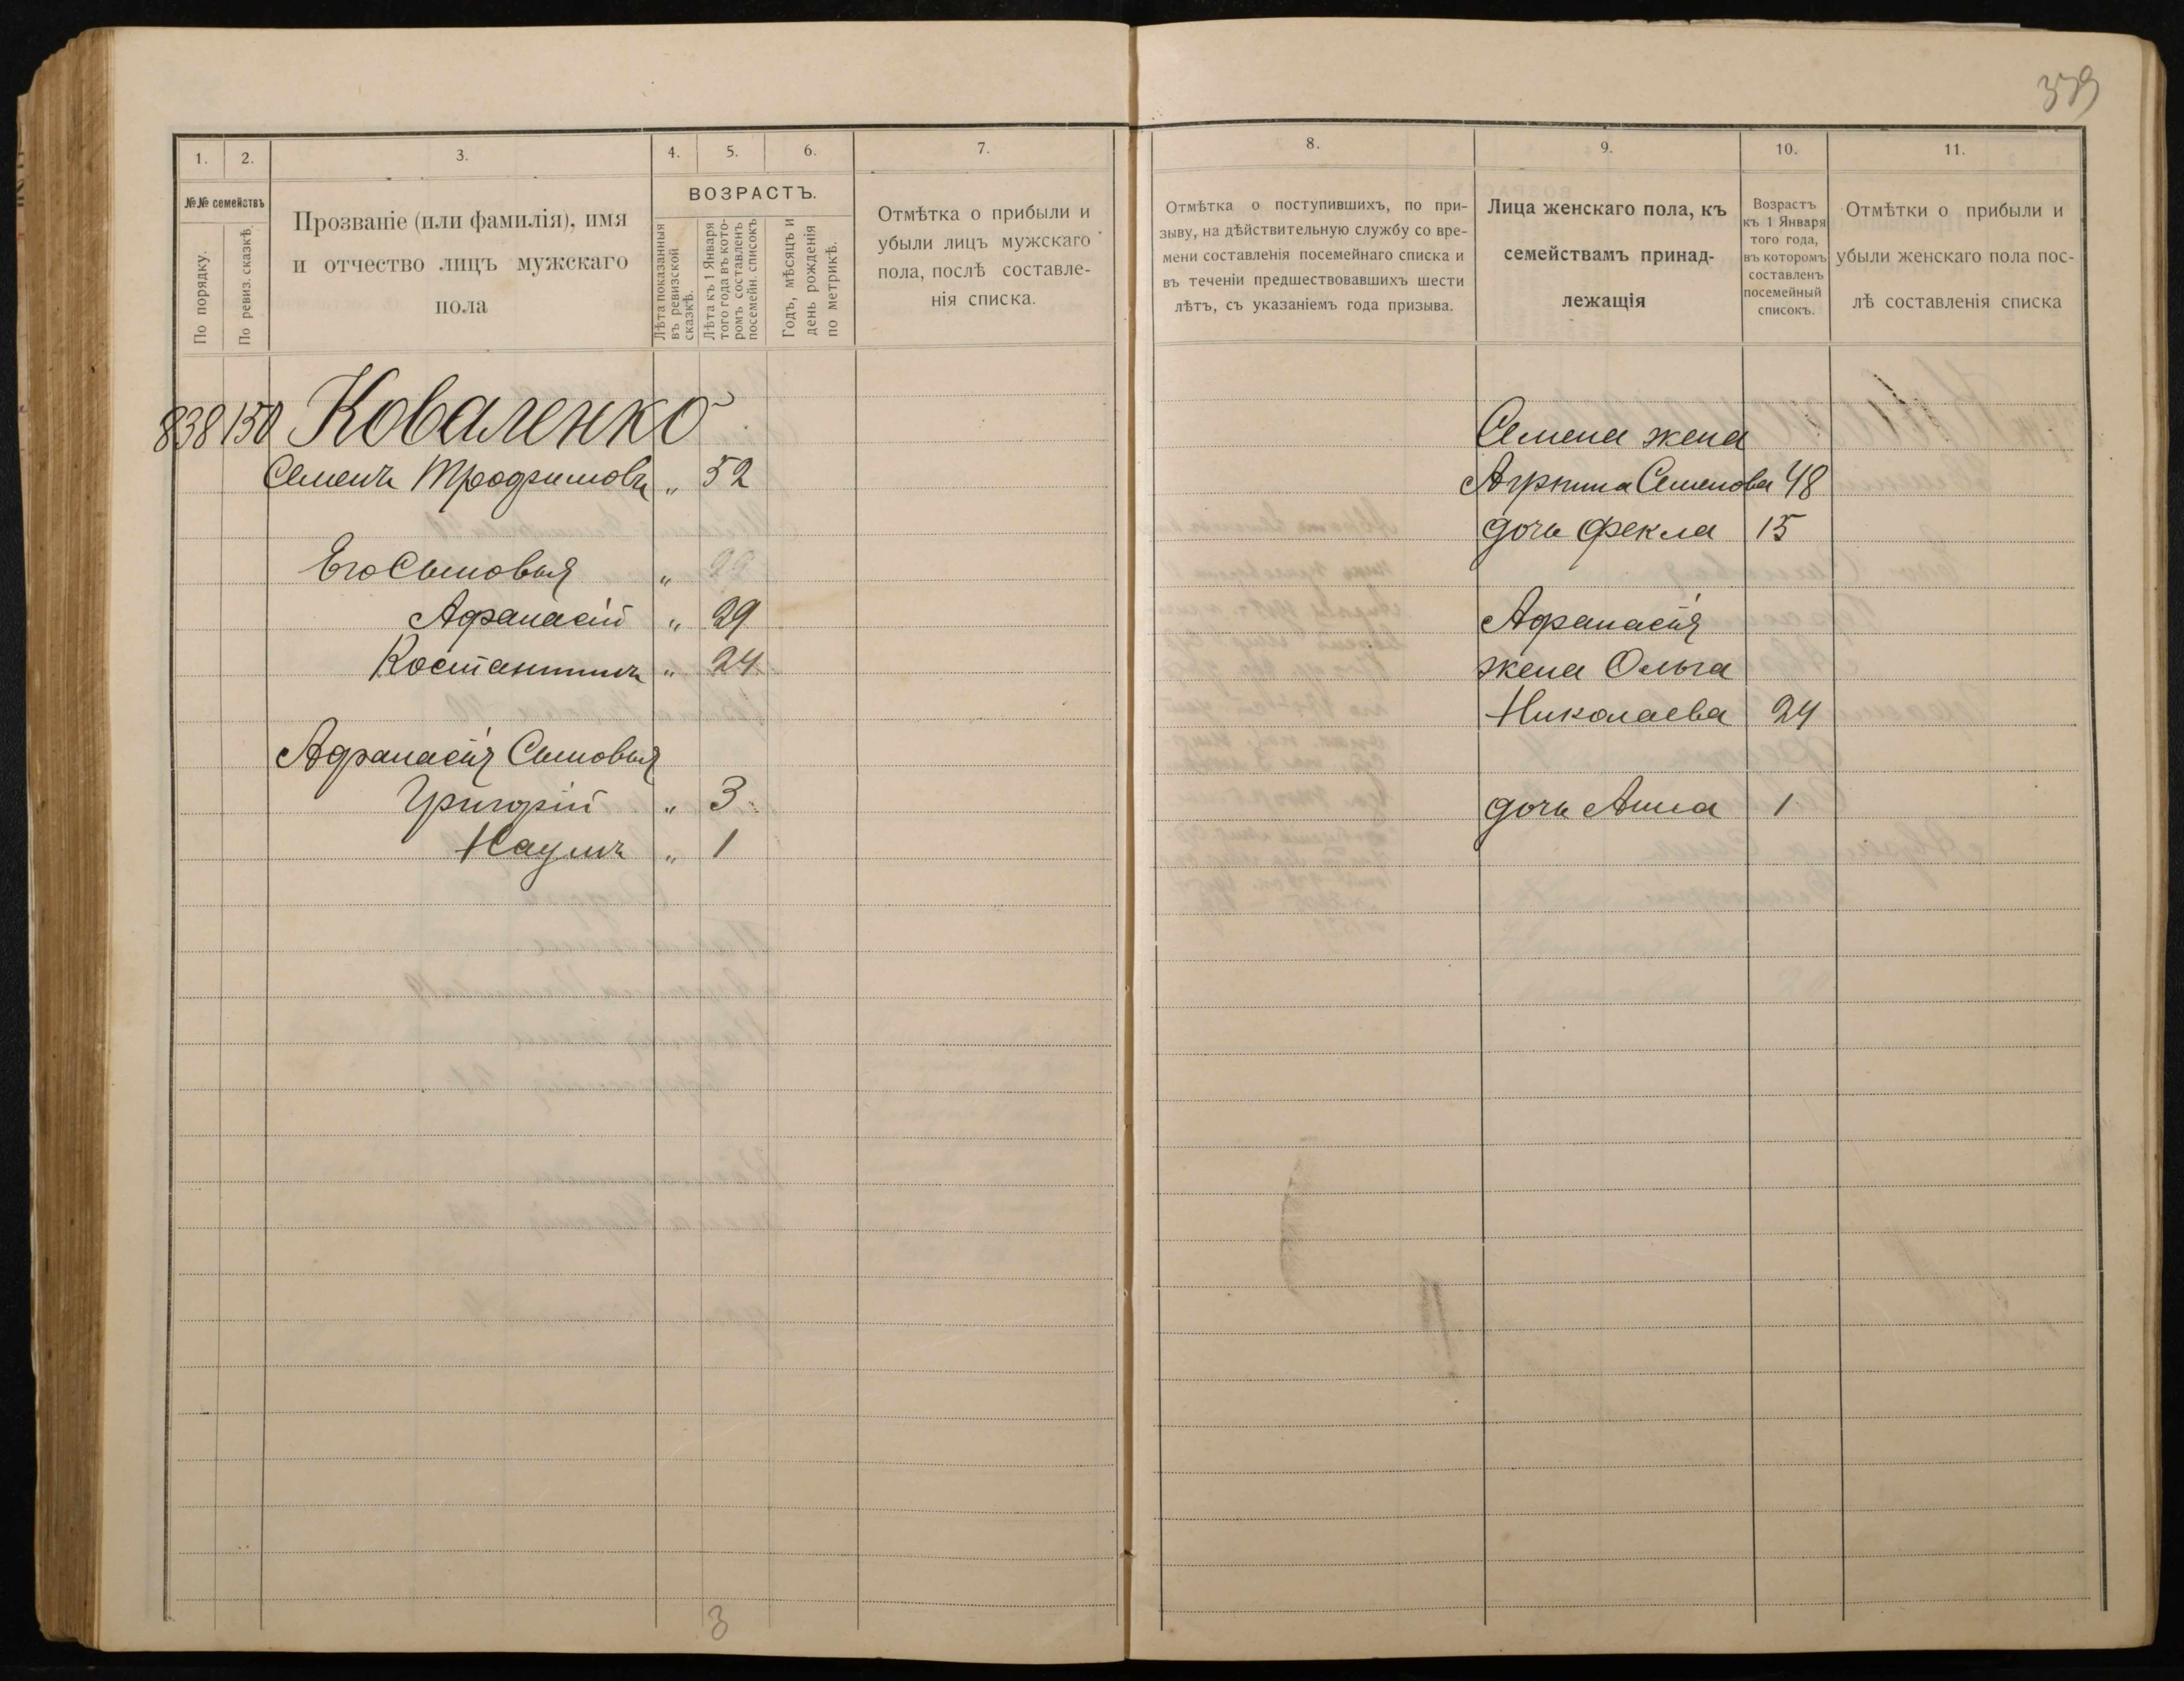 339
1. 2. 3. 4. 5. 6. 7.
№№ семействъ
По порядку.
По ревиз. сказкѣ.
Прозваніе (или фамилія), имя
и отчество лицъ мужскаго
пола
ВОЗРАСТЪ.
Лѣта показанныя
въ ревизской
сказкѣ.
Лѣта къ 1 Января
того года въ кото-
ромъ составленъ
посемейн. списокъ
Годъ, мѣсяцъ и
день рожденія
по метрикѣ.
Отмѣтка о прибыли и
убыли лицъ мужскаго
пола, послѣ составле-
нія списка.
838 150 Коваленко
Семенъ Трофимовъ „ 52
Его Сыновья „
Афанасій „ 29
Костантинъ „ 24
Афанасія Сыновья
Григорій „ 3
Наумъ „ 1
3
8. 9. 10. 11.
Отмѣтка о поступившихъ, по при-
зыву, на дѣйствительную службу со вре-
мени составленія посемейнаго списка и
въ теченіи предшествовавшихъ шести
лѣтъ, съ указаніемъ года призыва.
Лица женскаго пола, къ
семействамъ принад-
лежащія
Возрастъ
къ 1 Января
того года,
въ которомъ
составленъ
посемейный
списокъ.
Отмѣтки о прибыли и
убыли женскаго пола пос-
лѣ составленія списка
Семена жена
Агрыпина Семенова 48
дочь Фекла 15
Афанасія
жена Ольга
Николаева 24
дочь Анна 1